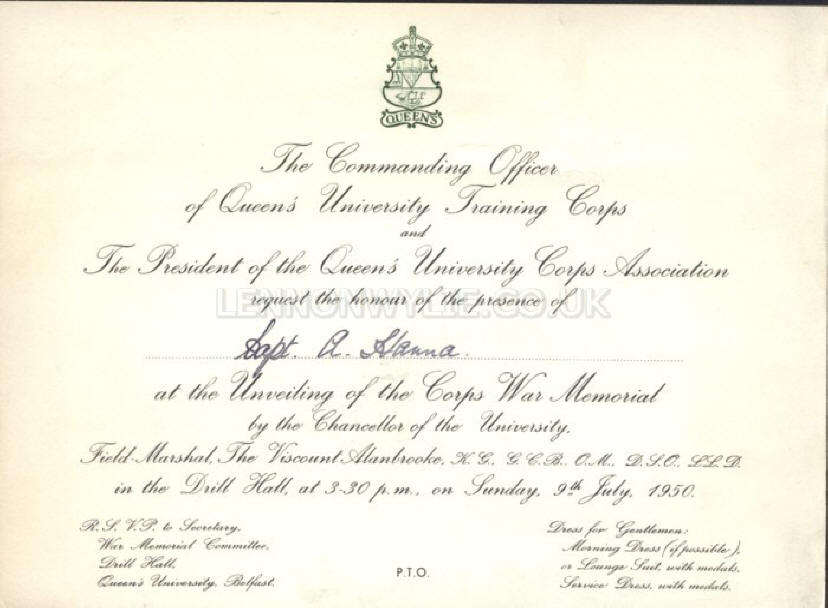 QUEEN'S
The Commanding Officer
of Queen's University Training Corps
and
The President of the Queen's University Corps Association
request the honour of the presence of
LENNONWYLIE.CO.UK
Capt. A. Hanna.
at the Unveiling of the Corps War Memorial
by the Chancellor of the University,
Field-Marshal, The Viscount Alanbrooke, K.G., G.C.B., O.M., D.S.O., LL.D.
in the Drill Hall, at 3-30 p.m., on Sunday, 9th July, 1950.
R.S.V.P. to Secretary,
War Memorial Committee,
Drill Hall,
Queen's University, Belfast.
P.T.O.
Dress for Gentlemen:
Morning Dress (if possible),
or Lounge Suit, with medals.
Service Dress, with medals.